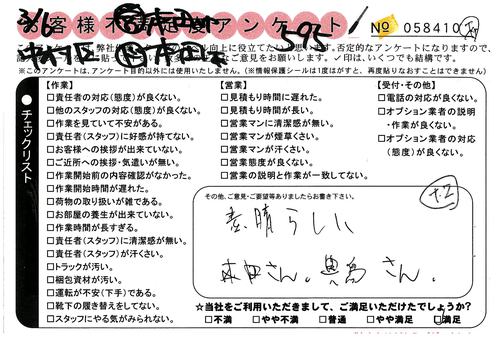 お客様不満足度アンケート
3/6
595
№ 058410
※このアンケートは、アンケート目的以外には使用いたしません。(※情報保護シールは1度はがすと、再度貼りなおすことはできません)
チェックリスト
【作業】
□責任者の対応(態度)が良くない。
□他のスタッフの対応(態度)が良くない。
□作業を見ていて不安がある。
□責任者(スタッフ)に好感が持てない。
□お客様への挨拶が出来ていない。
□ご近所への挨拶・気遣いが無い。
□作業開始前の内容確認がなかった。
□作業開始時間が遅れた。
□荷物の取り扱いが雑である。
□お部屋の養生が出来ていない。
□作業時間が長すぎる。
□責任者(スタッフ)に清潔感が無い。
□責任者(スタッフ)が汗くさい。
□トラックが汚い。
□梱包資材が汚い。
□運転が不安(下手)である。
□靴下の履き替えをしてない。
□スタッフにやる気がみられない。
【営業】
□見積もり時間に遅れた。
□見積もり時間が長い。
□営業マンに清潔感が無い。
□営業マンが煙草くさい。
□営業マンが汗くさい。
□営業態度が良くない。
□営業の説明と作業が一致してない。
【受付・その他】
□電話の対応が良くない。
□オプション業者の説明
・作業が良くない。
□オプション業者の対応
(態度)が良くない。
その他、ご意見・ご要望等ありましたらお書き下さい。
素晴らしい
本田さん。奥島さん。
☆当社をご利用いただきまして、ご満足いただけたでしょうか?
□不満 □やや不満 □普通 □やや満足 □満足